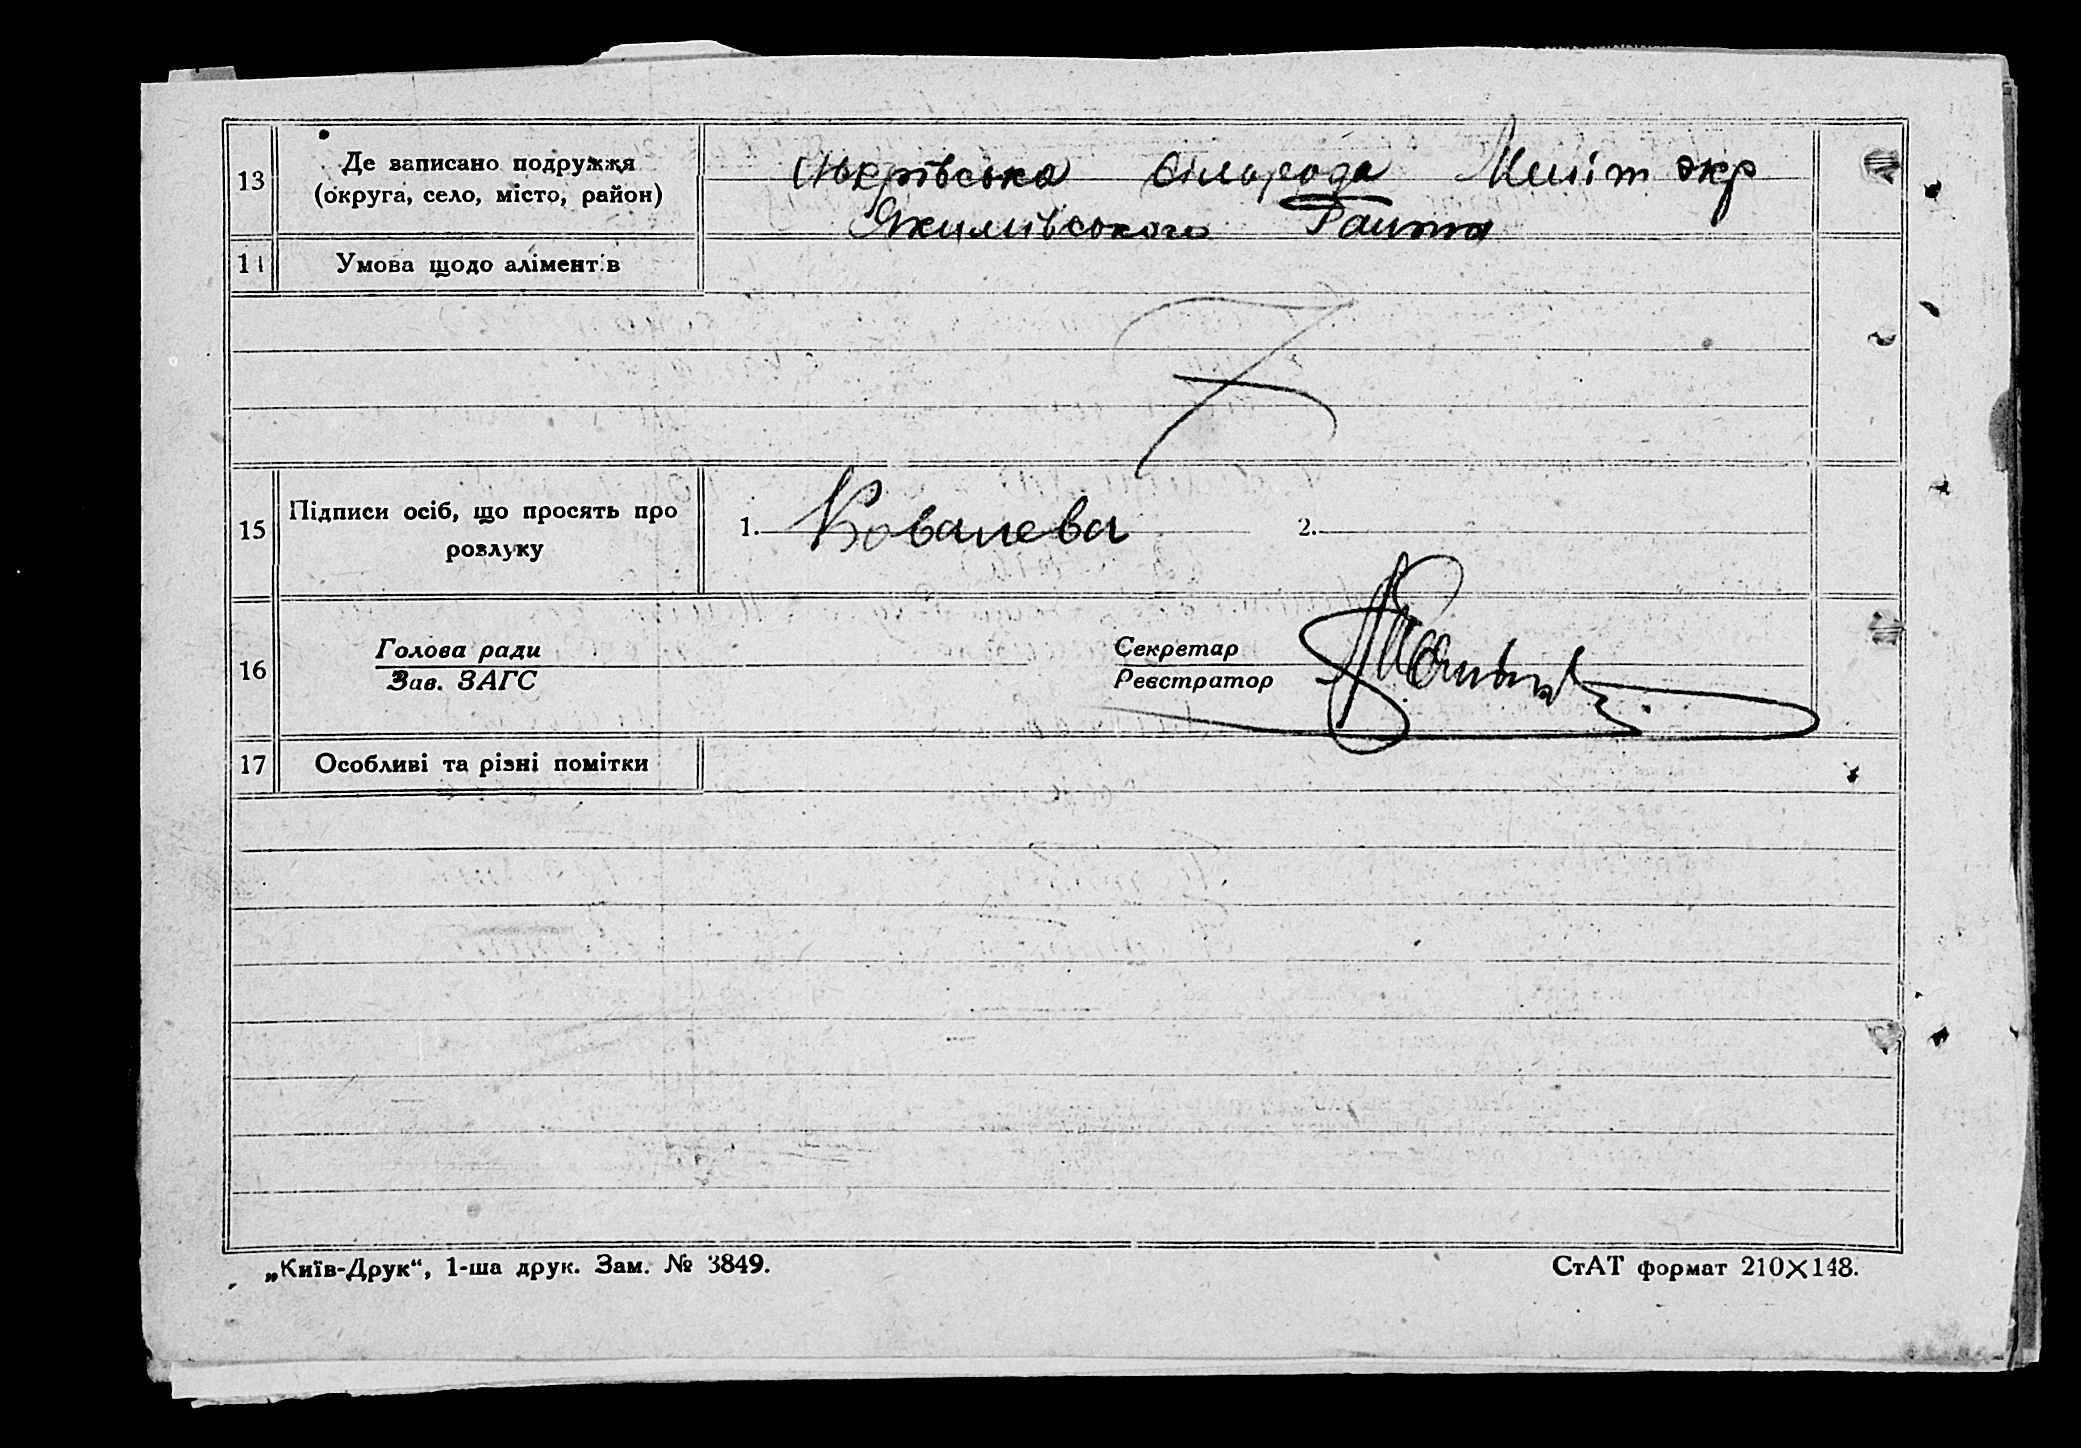 13 Де записано подружжя
(округа, село, місто, район)
сількрада Меліт окр
Якимівського Району
14 Умова щодо аліментів
15 Підписи осіб, що просять про
розлуку
1. Ковалева 2.
16 Голова ради
Зав. ЗАГС
Секретар
Реєстратор
17 Особливі та різні помітки
„Київ-Друк“, 1-ша друк. Зам. № 3849. СтАТ формат 210×148.